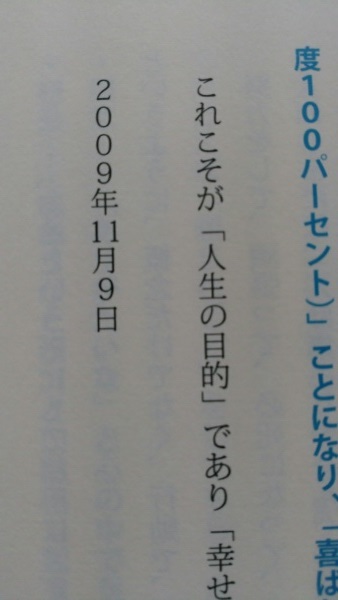 度100パーセント)」ことになり、「喜ば
これこそが「人生の目的」であり「幸せ
2009年11月9日